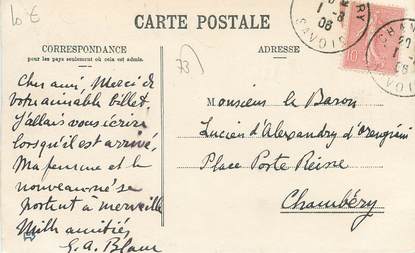 10 €
CARTE POSTALE
CORRESPONDANCE
pour les pays seulement où cela est admis.
ADRESSE
73
CHAMBÉRY
SAVOIE
1-8
06
10
Cher ami, Merci de
votre aimable billet.
J'allais vous écrire
lorsqu'il est arrivé.
Ma femme et le
nouveau né se
portent à merveille
Mille amitiés
G. A. Blanc
Monsieur le Baron
Lucien d'Alexandry d'Orengiani
Place Porte Reine
Chambéry